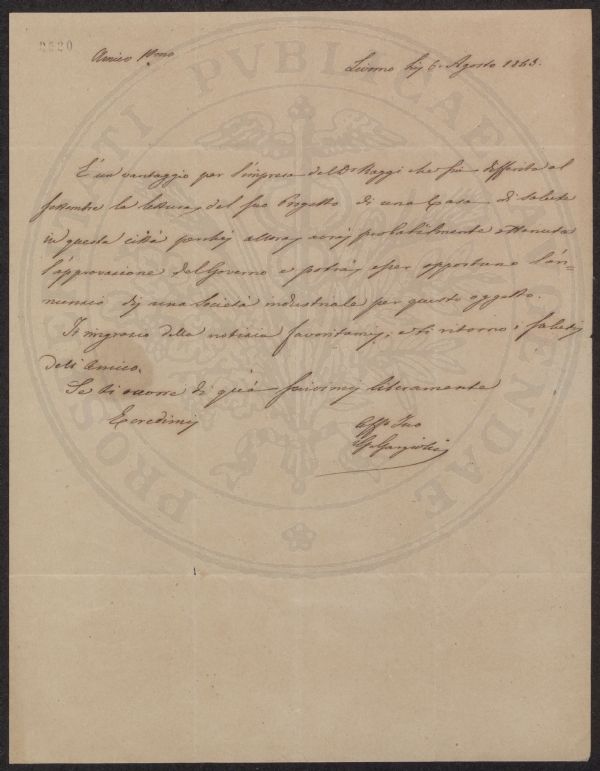 2520
Amico Pmo
Livorno li 6. Agosto 1863.
È un vantaggio per l'impresa del Dr Maggi che sia differita al
settembre la lettura del suo Progetto di una Casa di Salute
in questa città perchè allora avrà probabilmente ottenuta
l'approvazione del Governo e potrà esser opportuno l'an-
nunzio di una Società industriale per questo oggetto.
Ti ringrazio della notizia favoritami, e ti ritorno i saluti
dell'Amico.
Se ti occorre di quà scrivimi liberamente
E credimi
Affo Tuo
PROSPERITATI PVBLICAE AVGENDAE